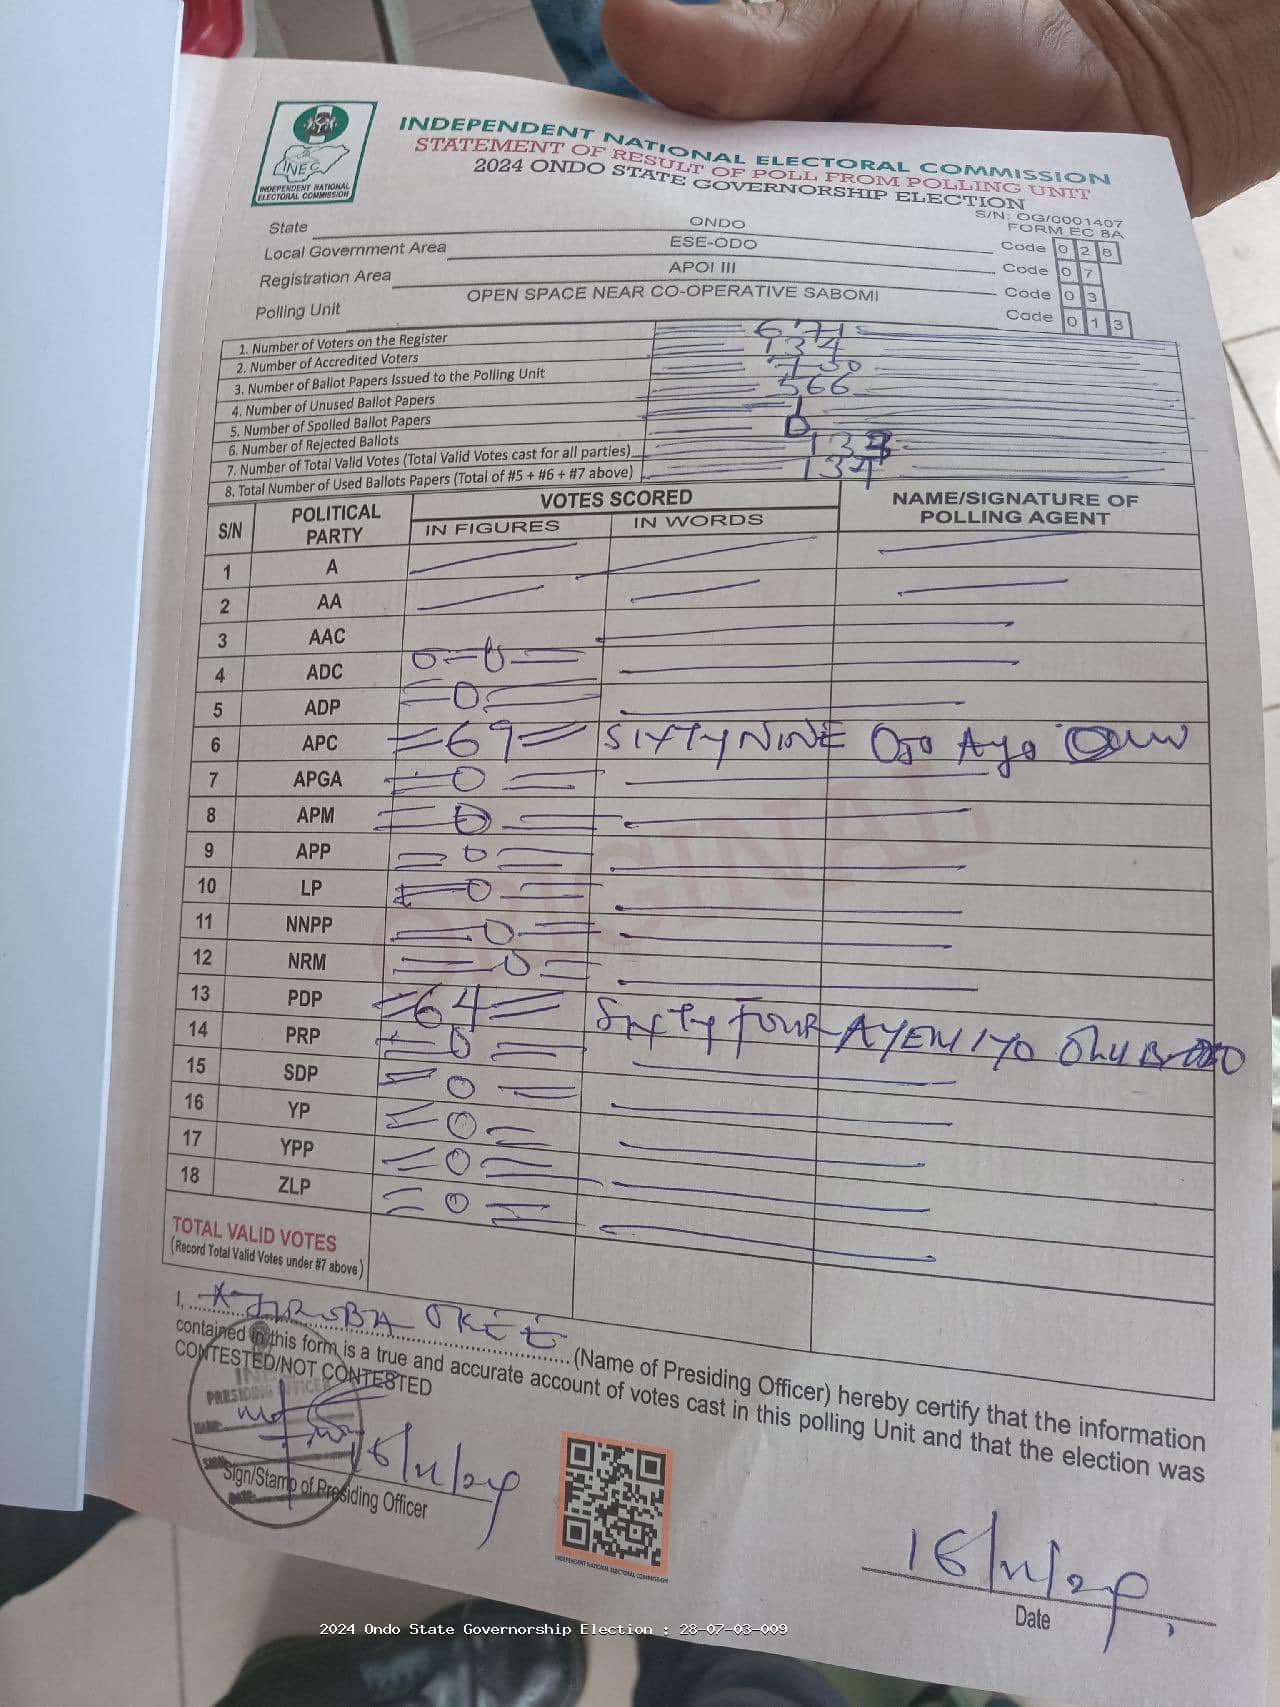 INEC
INDEPENDENT NATIONAL
ELECTORAL COMMISSION
INDEPENDENT NATIONAL ELECTORAL COMMISSION
STATEMENT OF RESULT OF POLL FROM POLLING UNIT
2024 ONDO STATE GOVERNORSHIP ELECTION
S/N: OG/0001407
FORM EC 8A
State ONDO Code 0 2 8
Local Government Area ESE-ODO Code 0 7
Registration Area APOI III Code 0 3
Polling Unit OPEN SPACE NEAR CO-OPERATIVE SABOMI Code 0 1 3
1. Number of Voters on the Register 671
2. Number of Accredited Voters 134
3. Number of Ballot Papers Issued to the Polling Unit
4. Number of Unused Ballot Papers 566
5. Number of Spolled Ballot Papers 1
6. Number of Rejected Ballots 0
7. Number of Total Valid Votes (Total Valid Votes cast for all parties)
8. Total Number of Used Ballots Papers (Total of #5 + #6 + #7 above) 134
S/N POLITICAL PARTY VOTES SCORED NAME/SIGNATURE OF POLLING AGENT
IN FIGURES IN WORDS
1 A
2 AA
3 AAC
4 ADC 0-0
5 ADP 0
6 APC =69= SIXTY NINE OJO AYO
7 APGA 0
8 APM 0
9 APP 0
10 LP 0
11 NNPP 0
12 NRM 0
13 PDP =64= SIXTY FOUR AYENIYO
14 PRP 0
15 SDP 0
16 YP 0
17 YPP 0
18 ZLP 0
ORIGINAL
TOTAL VALID VOTES
(Record Total Valid Votes under #7 above)
I, OKE (Name of Presiding Officer) hereby certify that the information
contained in this form is a true and accurate account of votes cast in this polling Unit and that the election was
CONTESTED/NOT CONTESTED
PRESIDING OFFICER
16/11/24
Sign/Stamp of Presiding Officer
INDEPENDENT NATIONAL ELECTORAL COMMISSION
16/11/24
Date
2024 Ondo State Governorship Election : 28-07-03-009